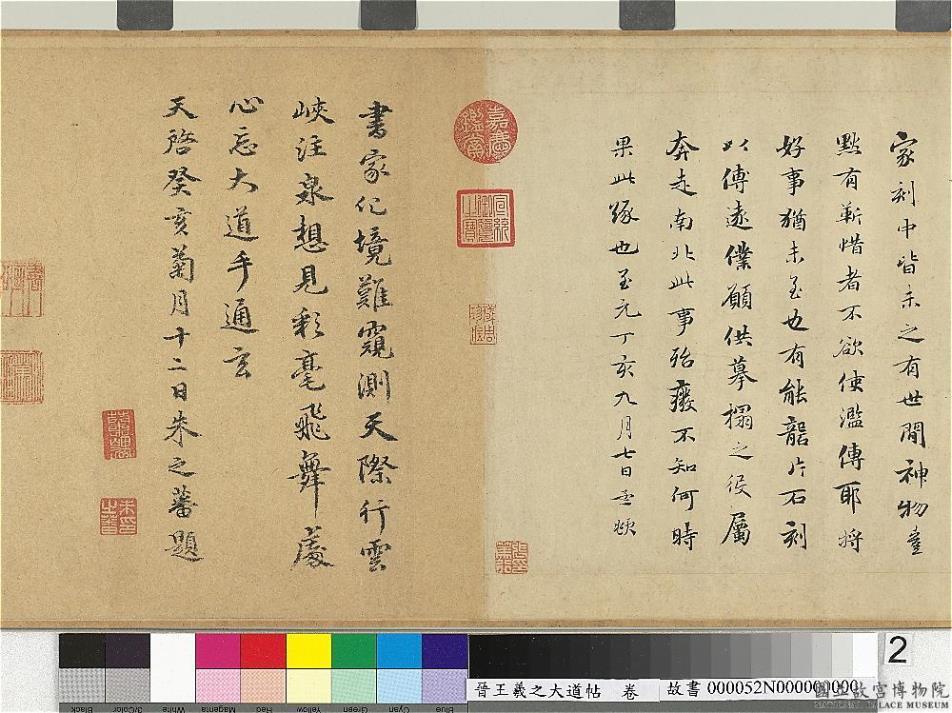 家刻中皆未之有世間神物豈
默有蘄惜者不欲使濫傳耶將
好事猶未至也有能䶬片石刻
以傳遠僕願供摹搨之役屬
奔走南北此事殆癈不知何時
果此緣也至元丁亥九月七日
嘉慶鑑賞
宣統御覽之寶
書家化境難窺測天際行雲
峽注泉想見彩毫飛舞處
心忘大道手通玄
天啓癸亥菊月十二日朱之蕃題
朱印之蕃
2
晉王羲之大道帖 卷
故書 000052N000000000
國立故宮博物院
NATIONAL PALACE MUSEUM
Blue
Cyan
Green
Yellow
Red
Magenta
White
3/Color
Black